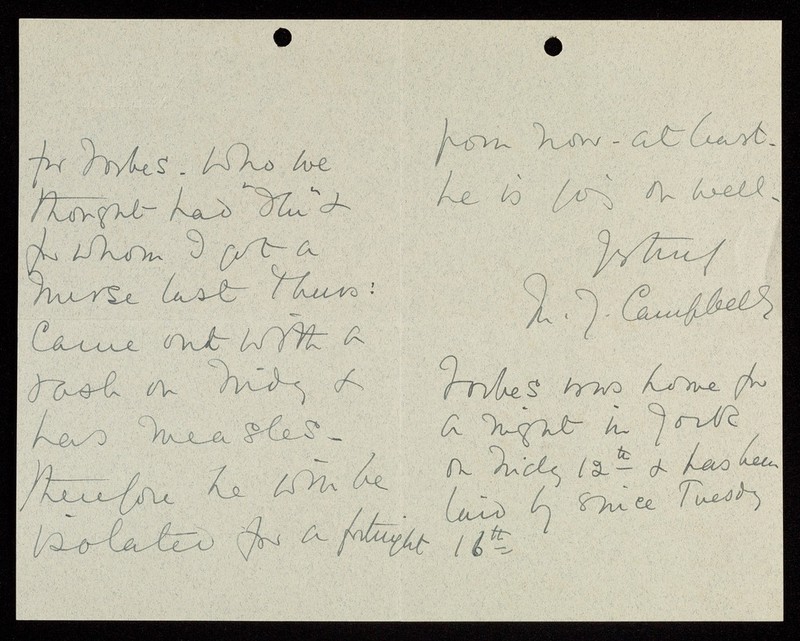 for Forbes. Who we
thought had "Flu" &
for whom I got a
Nurse last Thurs:
Came out with a
rash on Friday &
has measles -
therefore he will be
isolated for a fortnight
from now - at least.
he is on well.
Yrs truly
M. J. Campbell
Forbes was home for
a night in York
on Friday 12th & has been
laid by since Tuesday
16th